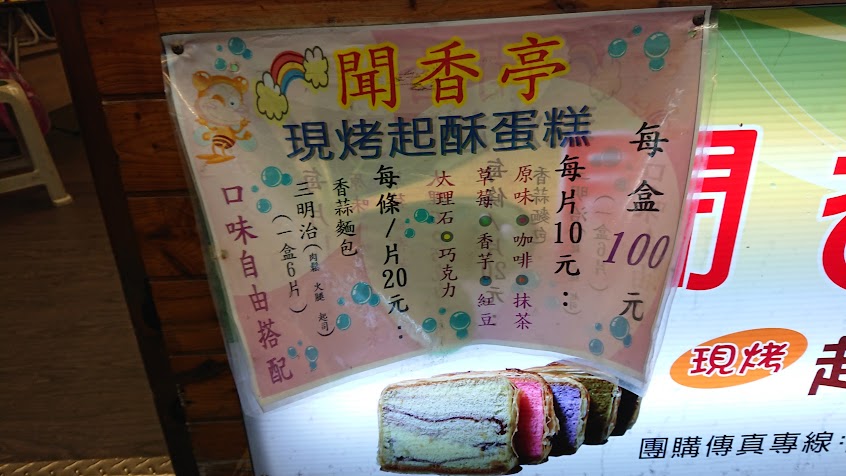 聞香亭
現烤起酥蛋糕
每盒100元
每片10元:
原味●咖啡●抹茶
草莓●香芋●紅豆
大理石●巧克力
每條/片20元:
香蒜麵包
三明治(肉鬆 火腿 起司)
(一盒6片)
口味自由搭配
現烤
團購傳真專線: